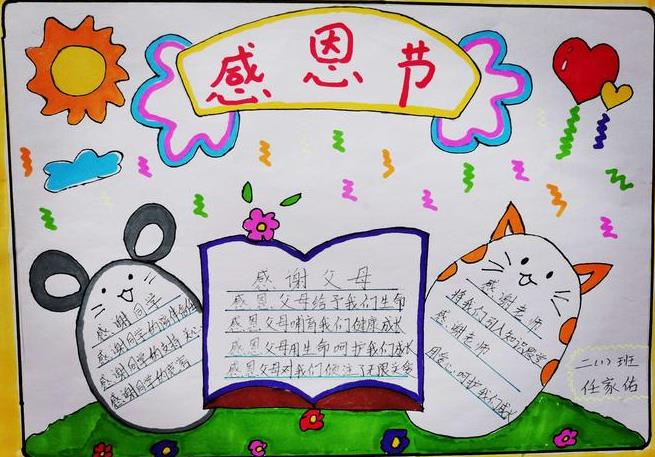 感恩节
感谢同学
感谢同学的陪伴
感谢同学的支持
感谢同学的
感谢父母
感恩父母给予我们生命
感恩父母哺育我们健康成长
感恩父母用生命呵护我们成长
感恩父母对我们倾注了无限
感谢老师
将我们引入知识
感谢老师
呵护我们成长
二(1)班
任家佑